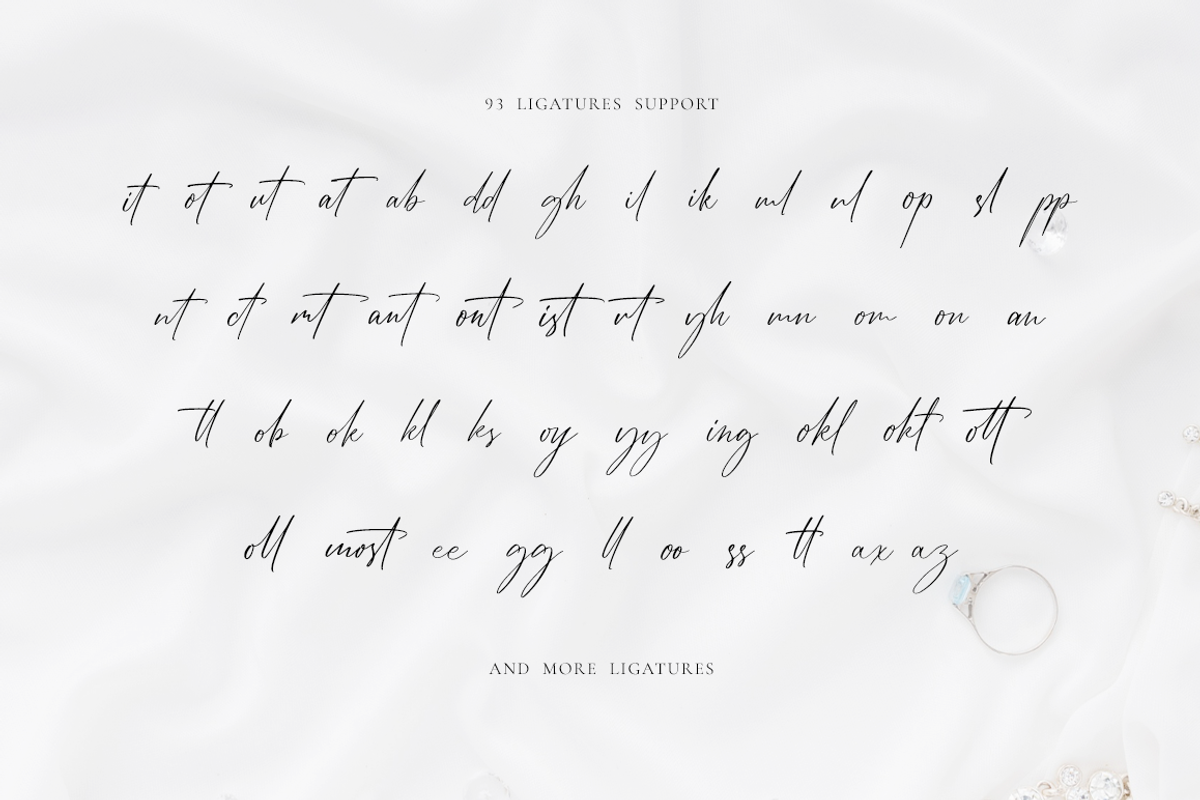 93 LIGATURES SUPPORT
it ot ut at ab dd gh il ik ml ul op sl pp
nt ct mt ant ont ist rt yh mn om on an
tl ob ok kl ks oy yy ing okl okt ott
oll most ee gg ll oo ss tt ax az
AND MORE LIGATURES